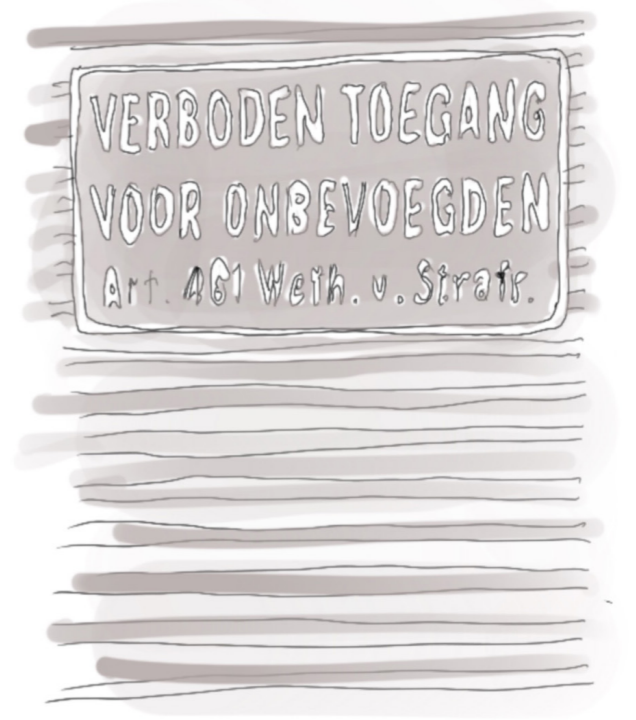 VERBODEN TOEGANG
VOOR ONBEVOEGDEN
Art. 461 Weth. v. Strafr.